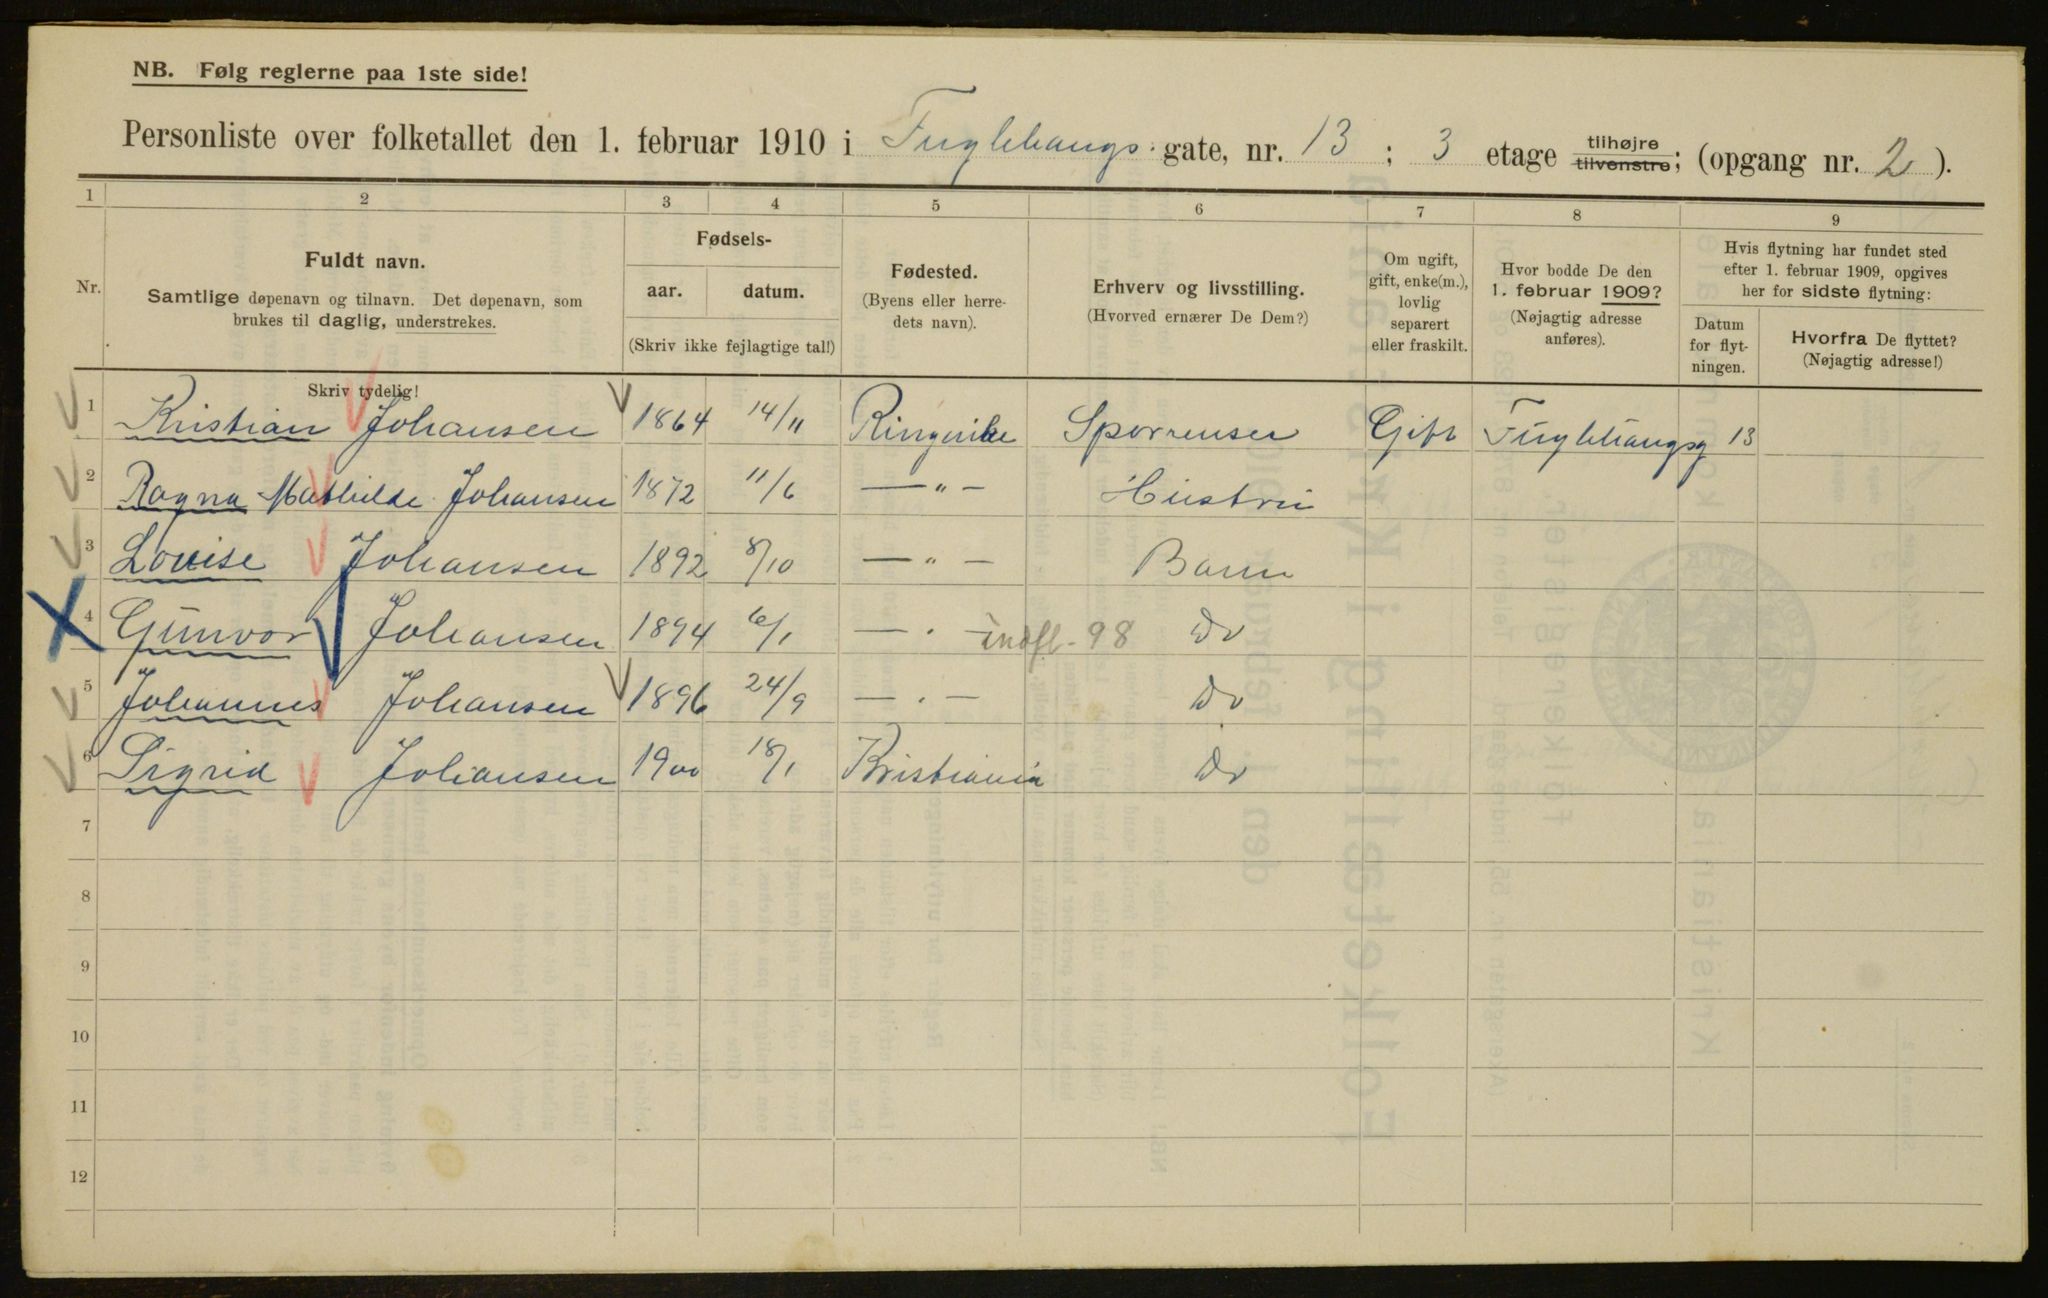 NB. Følg reglerne paa 1ste side!
Personliste over folketallet den 1. februar 1910 i Fuglehaugs. gate, nr. 13 ; 3 etage tilhøjre tilvenstre; (opgang nr. 2 ).
1 2 3 4 5 6 7 8 9
Nr.
Fuldt navn.
Samtlige døpenavn og tilnavn. Det døpenavn, som
brukes til daglig, understrekes.
Fødsels-
aar. datum.
(Skriv ikke fejlagtige tal!)
Fødested.
(Byens eller herre-
dets navn).
Erhverv og livsstilling.
(Hvorved ernærer De Dem?)
Om ugift,
gift, enke(m.),
lovlig
separert
eller fraskilt.
Hvor bodde De den
1. februar 1909?
(Nøjagtig adresse
anføres).
Hvis flytning har fundet sted
efter 1. februar 1909, opgives
her for sidste flytning:
Datum
for flyt-
ningen.
Hvorfra De flyttet?
(Nøjagtig adresse!)
Skriv tydelig!
1 Kristian Johansen 1864 14/11 Ringerike Sporrenser Gift Fuglehaugsg 13
2 Ragna Mathilde Johansen 1872 11/6 — " — Hustru
3 Louise Johansen 1892 8/10 — " — Barn
4 Gunvor Johansen 1894 6/1 — " — indfl. 98 Do
5 Johannes Johansen 1896 24/9 — " — Do
6 Sigrid Johansen 1900 18/1 Kristiania Do
7
8
9
10
11
12